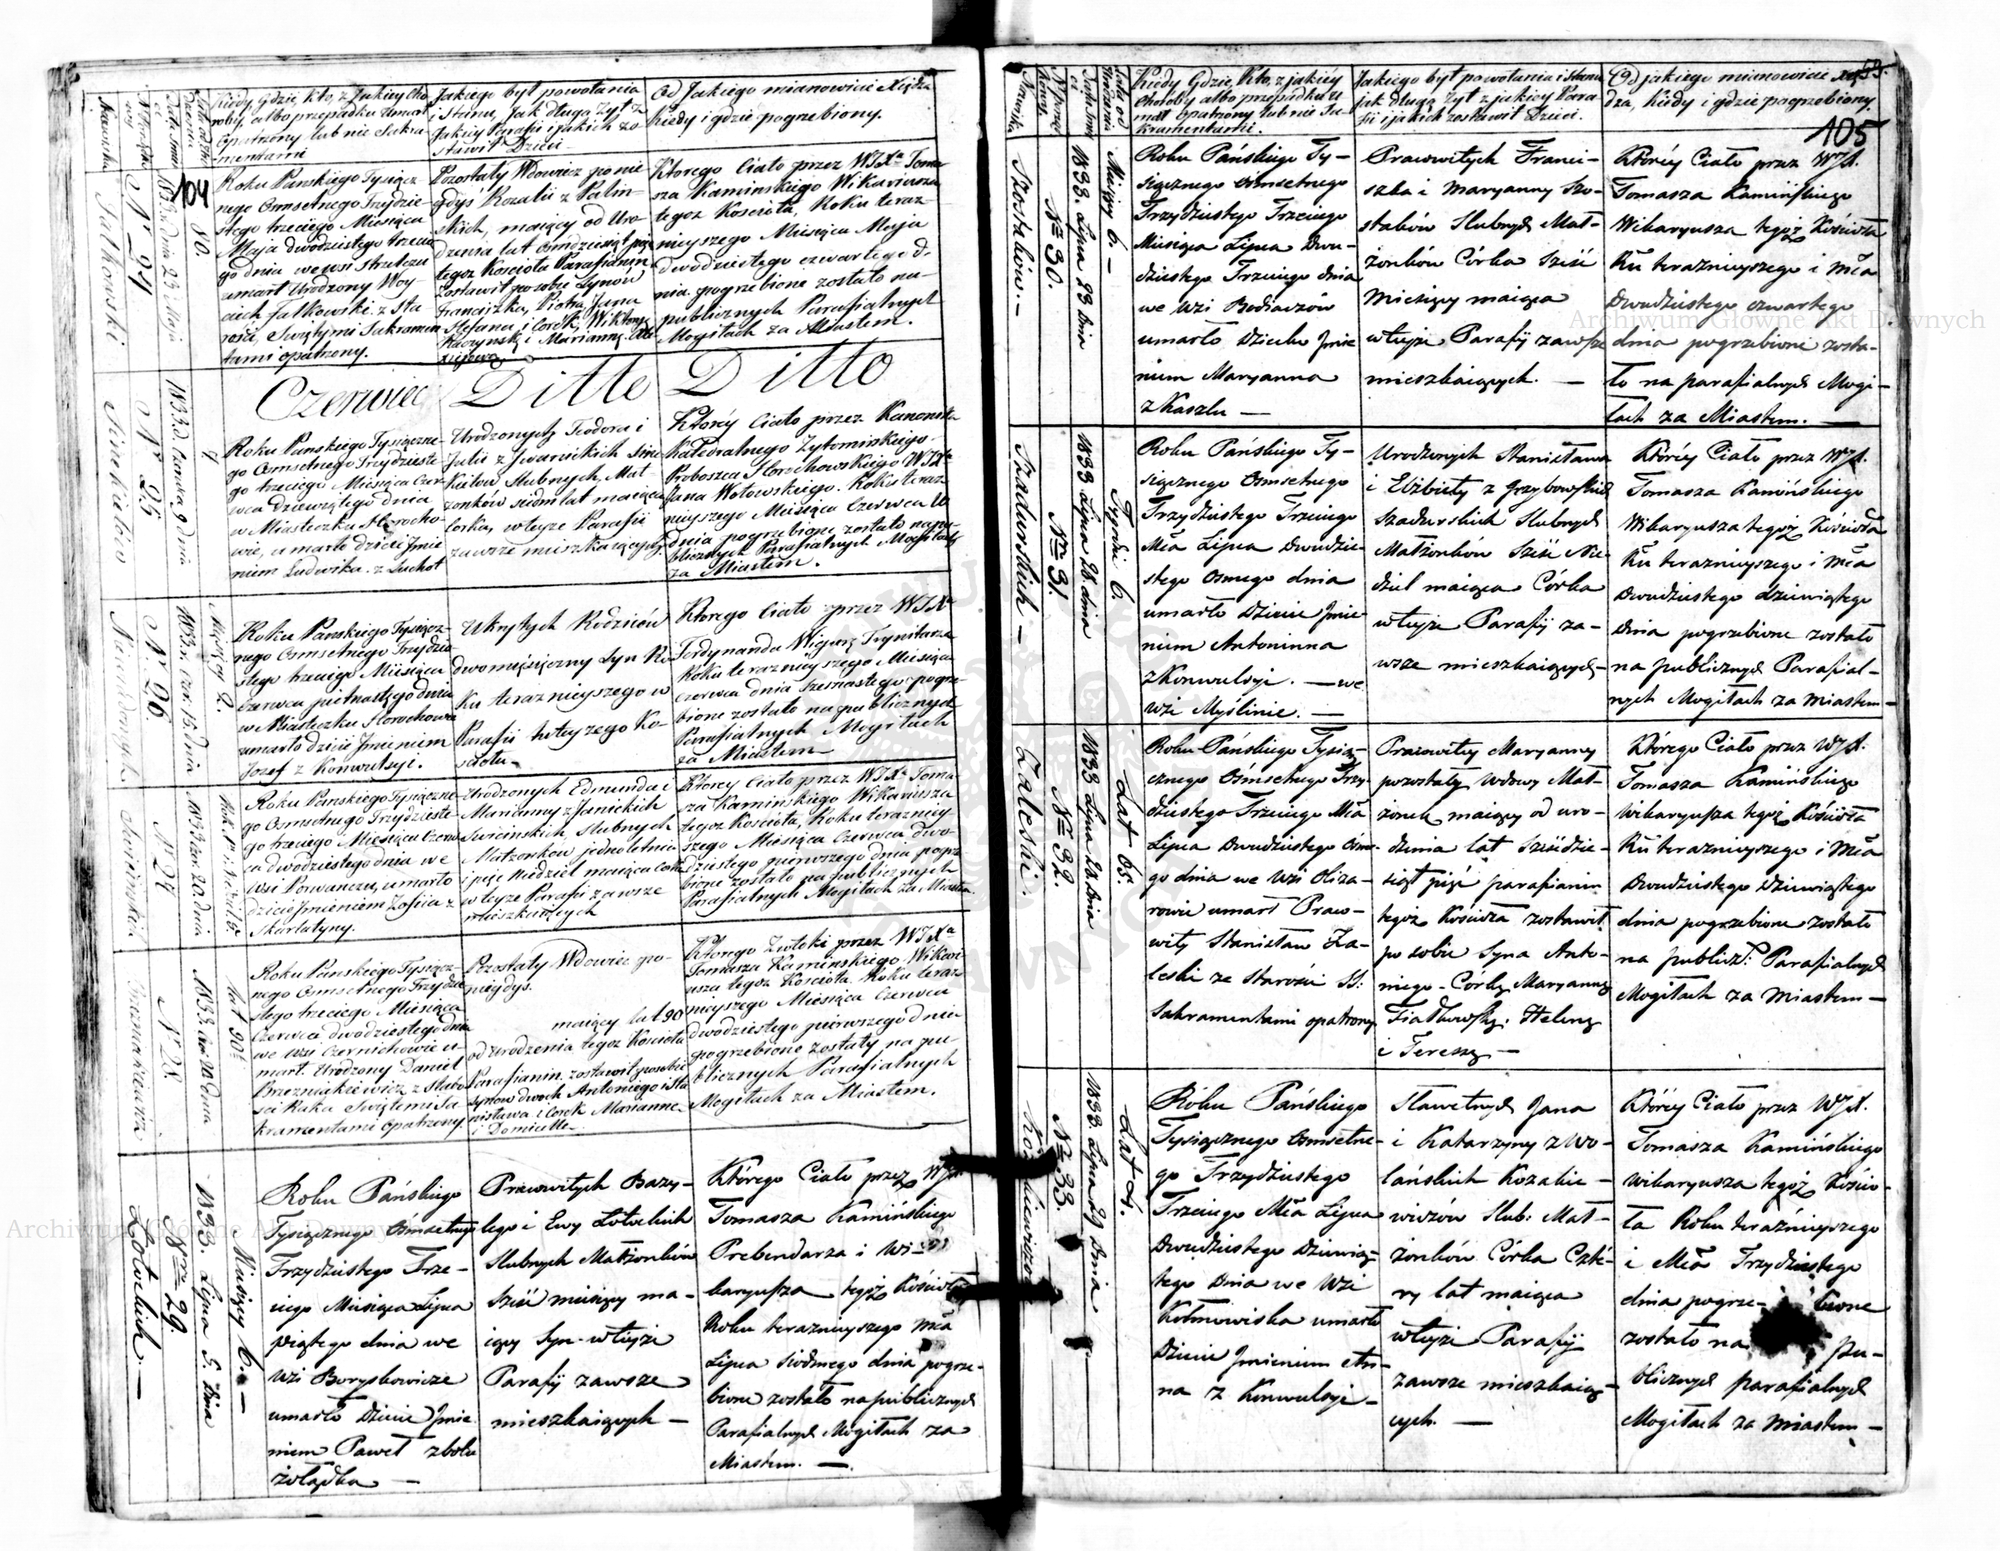 Kiedy, Gdzie, Kto, z Jakiey Cho
roby, albo przepadku Umarł
Opatrzony lub nie Sakra
mentami
Jakiego był powołania
i Stanu, Jak długo Żył z
Jakiey Parafii i jakich zo
stawił Dzieci
Od Jakiego mianowicie Xiędza
Kiedy i gdzie pogrzebiony.
104
Falkowski
Nº 24
1833 dnia 23 Maja
80.
Roku Panskiego Tysiącz
nego Osmsetnego Trzydzie
stego trzeciego Miesiąca
Maja dwudziestego trzecie
go dnia we wsi
umarł Urodzony Woy
ciech Falkowski z sta
rości, Swiętymi Sakramen
tami opatrzony.
Pozostały Wdowiec po nie
gdyś Rozalii z Palin
skich, maiący od Uro
dzenia lat Ośmdziesiąt
tegoż Kosciola Parafianin
zostawił po sobie Synów
Franciszka, Piotra, Jana
Stefana i Corek, Wiktoryę
i Mariannę
Ktorego Ciało przez WJXa Toma
sza Kaminskiego Wikariusza
tegoż Kosciola, Roku teraz
nieyszego Miesiąca Maja
dwudziestego czwartego d.
nia pogrzebione zostało na
publicznych Parafialnych
Mogiłach za Miastem.
Czerwiec Ditto Ditto
Nº 25
1833 d. Czerwca 9 dnia
7
Roku Panskiego Tysiączne
go Osmsetnego Trzydzieste
go trzeciego Miesiąca Czer
wca dziewiątego dnia
w Miasteczku Horocho
wie, umarło dziecie Jmie
niem Ludwika z Suchot
Urodzonych Teodora i
Julii z Jwanickich Sinie
Kiewow Slubnych, Mał
żonków siedm lat maiąca
Corka, w teyże Parafii
zawsze mieszkaiących
Ktorey Ciało przez Kanonika
Katedralnego Żytomirskiego
Proboszcza Horochowskiego WJXa
Jana Wołowskiego. Roku teraz
nieyszego Miesiąca Czerwca 10
dnia pogrzebione zostało na pu
blicznych Parafialnych Mogiłach
za Miastem.
Nº 26.
1833 r. czer. 15. dnia
Miesięcy 2.
Roku Panskiego Tysiącz
nego Osmsetnego Trzydzie
stego trzeciego Miesiąca
Czerwca pietnastego dnia
w Miasteczku Horochowie
umarło dziecie Jmieniem
Jozef z Konwulsyi.
Ukrytych Rodziców
dwomiesięczny Syn Ro
ku teraznieyszego w
Parafii tuteyszego Ko
scioła
Ktorego Ciało przez WJXa
Ferdynanda Trynitarza
Roku teraznieyszego Miesiąca
Czerwca dnia szesnastego pogrze
bione zostało na publicznych
Parafialnych Mogiłach
za Miastem
Nº 27
1833 czer. 20 dnia
Rok 1 i Niedziel 5.
Roku Panskiego Tysiączne
go Osmsetnego Trzydzieste
go trzeciego Miesiąca Czerw
ca dwudziestego dnia we
wsi Porwanczu, umarło
dziecie Jmieniem Zofia z
Skarlatyny.
Urodzonych Edmunda i
Marianny z Janickich
Swiecinskich, Slubnych
Małżonkow jednoletnia
i pięć Niedziel maiąca Corka
w teyże Parafii zawsze
mieszkaiących
Ktorey Ciało przez WJXa Toma
sza Kaminskiego Wikariusza
tegoż Kosciola, Roku terazniey
szego Miesiąca Czerwca dwu
dziestego pierwszego dnia pogrze
bione zostało na publicznych
Parafialnych Mogiłach za Miastem.
Nº 28.
Lat 90
Roku Panskiego Tysiącz
nego Osmsetnego Trzydzie
stego trzeciego Miesiąca
Czerwca dwudziestego dnia
we wsi Czernichowie u
marł Urodzony Daniel
z słabo
sci Raka Swiętemi Sa
kramentami opatrzony
Pozostały Wdowiec po
niegdyś.
maiący lat 90
od Urodzenia tegoż Kosciola
Parafianin zostawił po sobie
Synow dwoch Antoniego i Sta
nisława i Corek Mariannę
i Domicelle
Ktorego Zwłoki przez WJXa
Tomasza Kaminskiego Wikari
usza tegoż Kosciola Roku teraz
nieyszego Miesiąca Czerwca
dwudziestego pierwszego dnia
pogrzebione zostały na pu
blicznych Parafialnych
Mogiłach za Miastem.
Łotockich. —
Nro 29.
1833. Lipca 5. Dnia
Miesięcy 6. —
Roku Pańskiego
Tysiącznego Ośmsetnego
Trzydziestego Trze-
ciego Miesiąca Lipca
piątego dnia we
Wsi Boryskowicze
umarło Dziecie Jmie
niem Paweł z bolu
żołądka —
Praowitych Bazy-
lego i Ewy Łotockich
Slubnych Małżonków
Sześć miesięcy ma-
iący Syn w teyże
Parafij zawsze
mieszkaiących —
Którego Ciało przez WJX.
Tomasza Kamińskiego
Prebendarza i Wi-
karyusza tegoż Kościoła
Roku teraznieyszego Mca
Lipca siódmego dnia pogrze-
bione zostało na publicznych
Parafialnych Mogiłach za
Miastem. —
53.
105
Nazwisko
Kiedy Gdzie, Kto, z jakiéy
Choroby albo przepadku u
marł Opatrzony lub nie Sa-
kramentami.
Jakiego był powołania i stanu
jak długo Żył z jakiey Para
fii i jakich zostawił Dzieci.
Od jakiego mianowicie Xię
dza, Kiedy i gdzie pogrzebiony.
Szostaków. —
Nro 30.
1833. Lipca 23 Dnia
Miesięcy 6. —
Roku Pańskiego Ty-
siącznego Ośmsetnego
Trzydziestego Trzeciego
Miesiąca Lipca Dwu-
dziestego Trzeciego dnia
we Wsi
umarło Dziecko Jmie
niem Maryanna
z Kaszlu —
Praowitych Franci-
szka i Maryanny Szo-
staków Slubnych Mał-
żonków Córka Sześć
Miesięcy maiąca
w teyże Parafij zawsze
mieszkaiących. —
Któréy Ciało przez WJX.
Tomasza Kamińskiego
Wikaryusza tegoż Kościoła
Ru teraznieyszego i Mca
Dwudziestego czwartego
dnia pogrzebione zosta-
ło na parafialnych Mogi-
łach za Miastem. —
Szadurskich —
Nro 31.
1833 Lipca 28 dnia
Tygodni 6.
Roku Pańskiego Ty-
siącznego Ośmsetnego
Trzydziestego Trzeciego
Mca Lipca Dwudzie-
stego Osmego dnia
umarło Dziecie Jmie
niem Antoninna
z Konwulsyi. — we
Wsi Myślinie. —
Urodzonych Stanisława
i Elżbiety z Grzybowskich
Szadurskich Slubnych
Małżonków Sześć Nie-
dziel maiąca Córka
w teyże Parafij za-
wsze mieszkaiących —
Któréy Ciało przez WJX.
Tomasza Kamińskiego
Wikaryusza tegoż Kościoła
Ru teraznieyszego i Mca
Dwudziestego dziewiątego
Dnia pogrzebione zostało
na publicznych Parafial-
nych Mogiłach za Miastem —
Zaleski.
Nro 32.
1833 Lipca 28 Dnia
Lat 65.
Roku Pańskiego Tysią-
cznego Ośmsetnego Trzy-
dziestego Trzeciego Mca
Lipca Dwudziestego Ósme-
go dnia we Wsi Oliza-
rowie umarł Prao-
wity Stanisław Za-
leski ze Starości SS:
Sakramentami opatrzony
Praowitey Maryanny
pozostały wdowy Mał-
żonek maiący od uro-
dzenia lat Sześćdzie-
siąt pięć parafianin
tegoż Kościoła zostawił
po sobie Syna Anto-
niego - Córkę Maryannę
Fiadkowską: Helenę
i Teressę —
Którego Ciało przez WJX.
Tomasza Kamińskiego
Wikaryusza tegoż Kościoła
Ru teraznieyszego i Mca
Dwudziestego Dziewiątego
dnia pogrzebione zostało
na publicz: Parafialnych
Mogiłach za Miastem —
Nro 33.
1833. Lipca 29 Dnia
Lat 4.
Roku Pańskiego
Tysiącznego Osmsetne-
go Trzydziestego
Trzeciego Mca Lipca
Dwudziestego Dziewią-
tego Dnia we Wsi
umarło
Dziecie Jmieniem An-
na z Konwulsyi —
Sławetnych Jana
i Katarzyny z Wo-
lańskich Kozakie-
wiczów Slub: Mał-
żonków Córka Czté-
ry lat maiąca
w teyże Parafij
zawsze mieszkaią-
cych. —
Któréy Ciało przez WJX.
Tomasza Kamińskiego
wikaryusza tegoż Kościo-
ła Roku teraźnieyszego
i Mca Trzydziestego
dnia pogrze- bione
zostało na pu-
blicznych parafialnych
Mogiłach za Miastem —
Archiwum Główne Akt Dawnych
Archiwum Główne Akt Dawnych